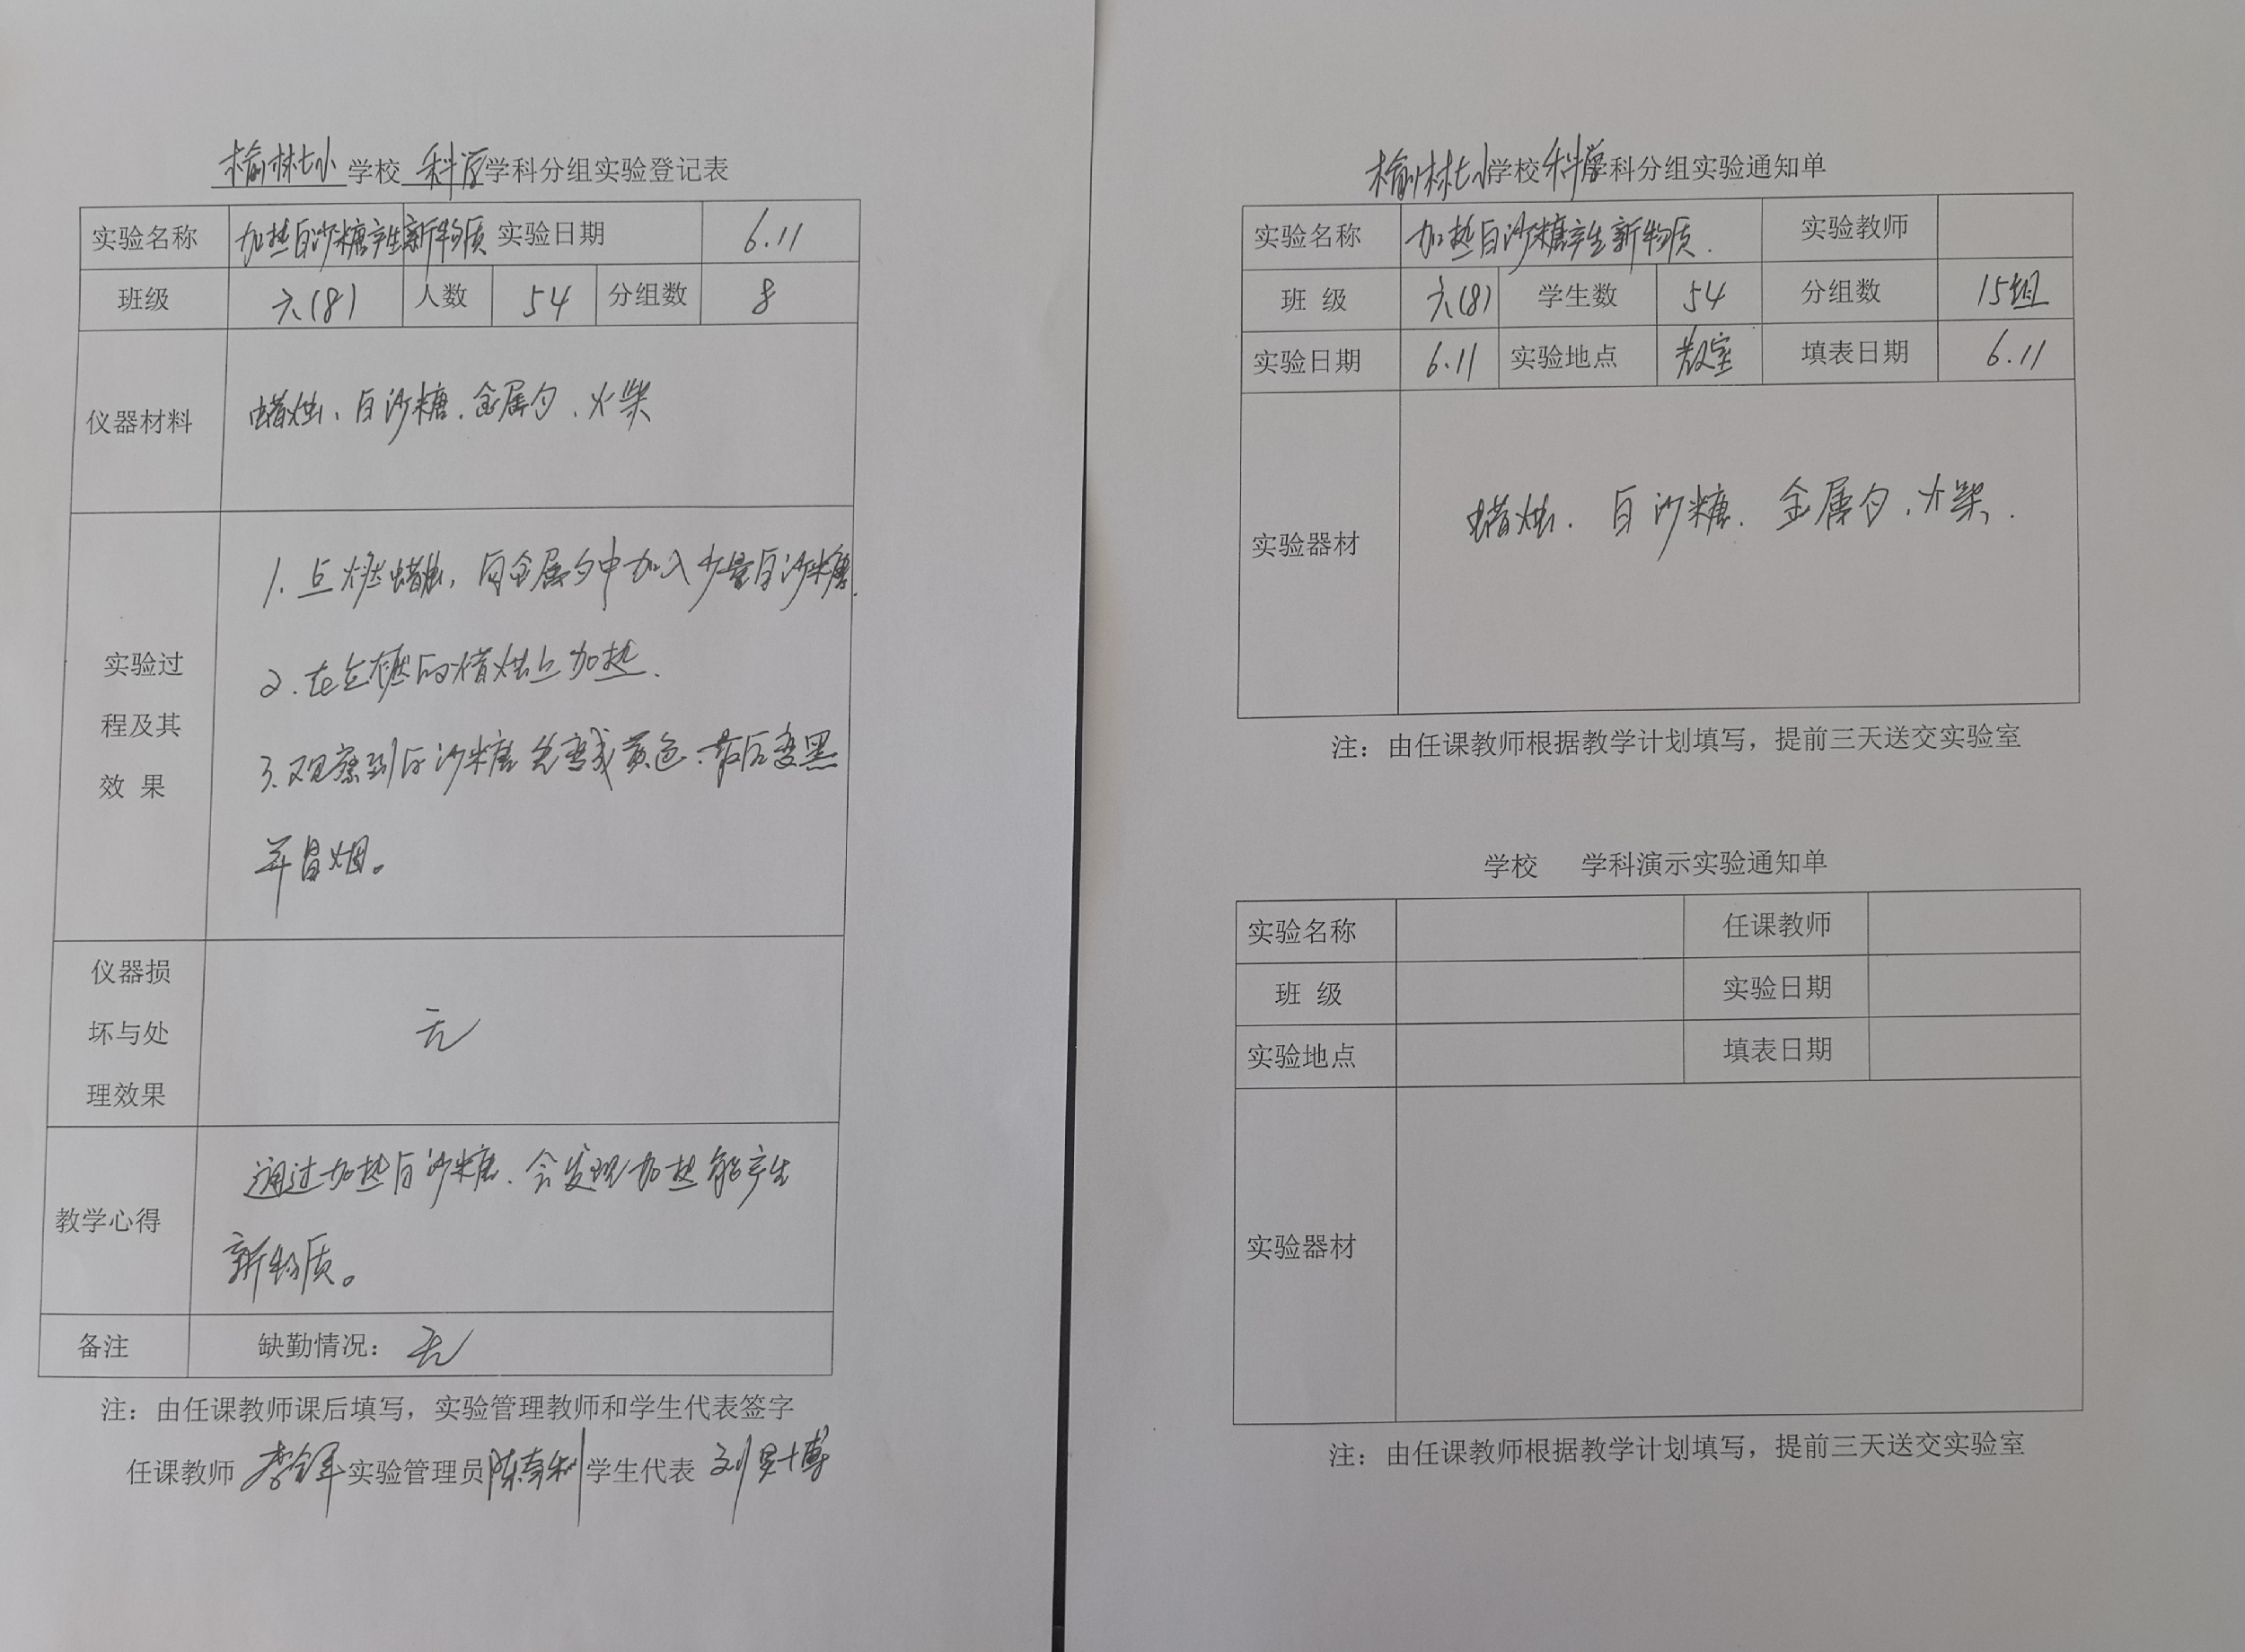 榆林七小学校 科学学科分组实验登记表
实验名称 加热白沙糖产生新物质 实验日期 6.11
班级 六(8) 人数 54 分组数 8
仪器材料 蜡烛、白沙糖.金属勺、火柴
实验过
程及其
效 果
1.点燃蜡烛,向金属勺中加入少量白沙糖.
2.在点燃的蜡烛上加热.
3.观察到白沙糖先变成黄色、最后变黑
并冒烟。
仪器损
坏与处
理效果
无
教学心得
通过加热白沙糖.会发现加热能产生
新物质。
备注 缺勤情况: 无
注:由任课教师课后填写,实验管理教师和学生代表签字
任课教师 实验管理员 学生代表
榆林七小学校科学学科分组实验通知单
实验名称 加热白沙糖产生新物质. 实验教师
班 级 六(8) 学生数 54 分组数 15组
实验日期 6.11 实验地点 教室 填表日期 6.11
实验器材 蜡烛.白沙糖.金属勺.火柴.
注:由任课教师根据教学计划填写,提前三天送交实验室
学校 学科演示实验通知单
实验名称 任课教师
班 级 实验日期
实验地点 填表日期
实验器材
注:由任课教师根据教学计划填写,提前三天送交实验室